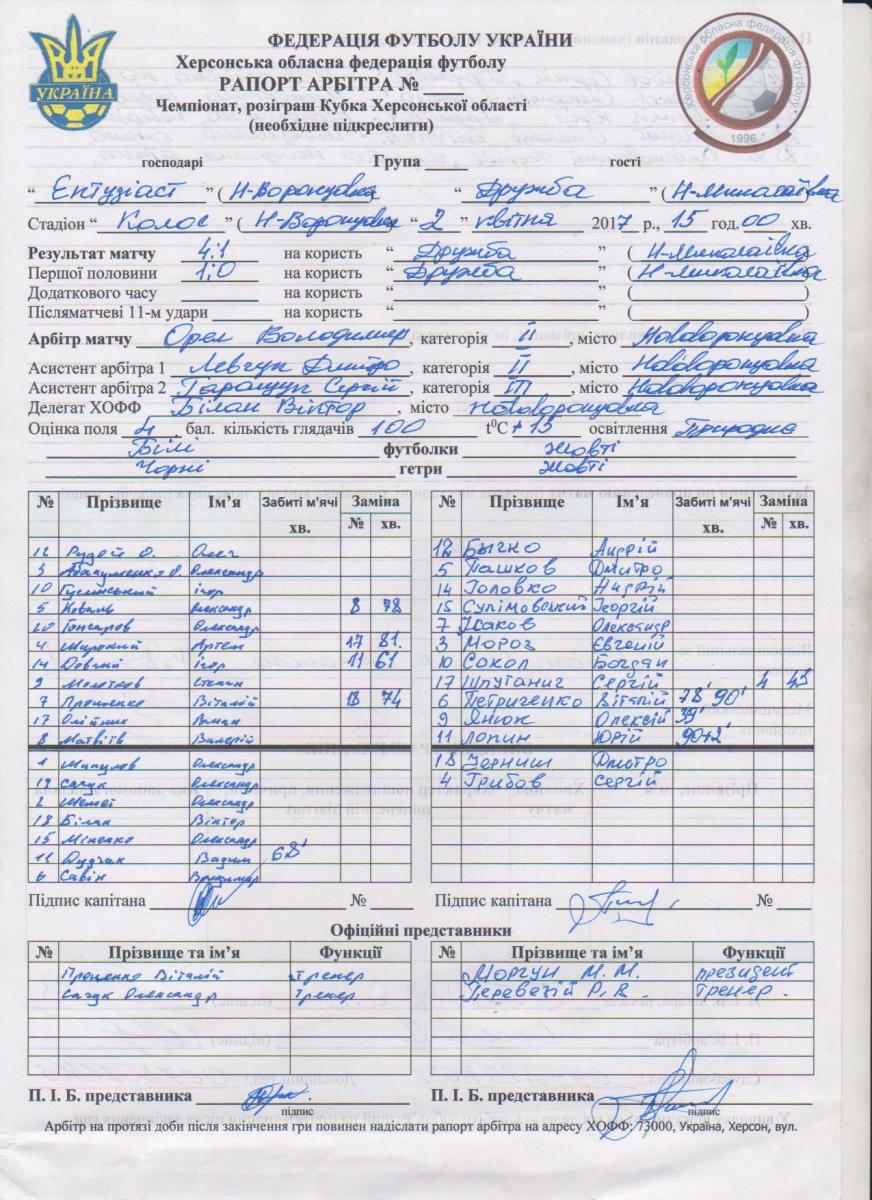 ФЕДЕРАЦІЯ ФУТБОЛУ УКРАЇНИ
Херсонська обласна федерація футболу
РАПОРТ АРБІТРА № ____
Чемпіонат, розіграш Кубка Херсонської області
(необхідне підкреслити)
УКРАЇНА
Херсонська обласна федерація футболу
1996
господарі Група ____ гості
“ Ентузіаст ” ( Н-Воронцовка “ Дружба ” ( Н-Миколаївка
Стадіон “ Колос ” ( Н-Воронцовка “ 2 ” квітня 2017 р., 15 год. 00 хв.
Результат матчу 4:1 на користь “ Дружба ” ( Н-Миколаївка
Першої половини 1:0 на користь “ Дружба ” ( Н-Миколаївка
Додаткового часу ____ на користь “ ____ ” ( ____ )
Післяматчеві 11-м удари ____ на користь “ ____ ” ( ____ )
Арбітр матчу Орел Володимир, категорія II, місто Нововоронцовка
Асистент арбітра 1 Левчук Дмитро, категорія II, місто Нововоронцовка
Асистент арбітра 2 Таращук Сергій, категорія III, місто Нововоронцовка
Делегат ХОФФ Білан Віктор, місто Нововоронцовка
Оцінка поля 4 бал. кількість глядачів 100 t⁰C +15 освітлення Природне
Білі футболки Жовті
Чорні гетри Жовті
№ Прізвище Ім’я Забиті м'ячі хв. Заміна № хв.
12 О. Олег
3 Олександр
10 Ігор
5 Коваль Олександр 8 78
20 Гончаров Олександр
4 Широкий Артем 17 81
14 Довгий Ігор 11 61
9 Молотков Степан
7 Проценко Віталій 18 74
17 Олійник Роман
8 Матвіїв Валерій
1 Олександр
19 Сачук Олександр
2 Шемет Олександр
18 Білан Віктор
15 Міненко Олександр
11 Дудчак Вадим 68'
6 Савін Володимир
№ Прізвище Ім’я Забиті м'ячі хв. Заміна № хв.
12 Бычко Андрій
5 Пашков Дмитро
14 Головко Андрій
15 Супімовський Георгій
7 Ісаков Олександр
3 Мороз Євгеній
10 Сокол Богдан
17 Шпуганич Сергій 4 43
6 Петриченко Віталій 78' 90'
9 Янюк Олексій 39'
11 Лопин Юрій 90+2'
18 Черниш Дмитро
4 Грибов Сергій
Підпис капітана № ____
Підпис капітана № ____
Офіційні представники
№ Прізвище та ім’я Функції
Проценко Віталій тренер
Сачук Олександр тренер
№ Прізвище та ім’я Функції
Моргун М. М. президент
Перевезій Р. В. тренер.
П. І. Б. представника
підпис
П. І. Б. представника
підпис
Арбітр на протязі доби після закінчення гри повинен надіслати рапорт арбітра на адресу ХОФФ: 73000, Україна, Херсон, вул.